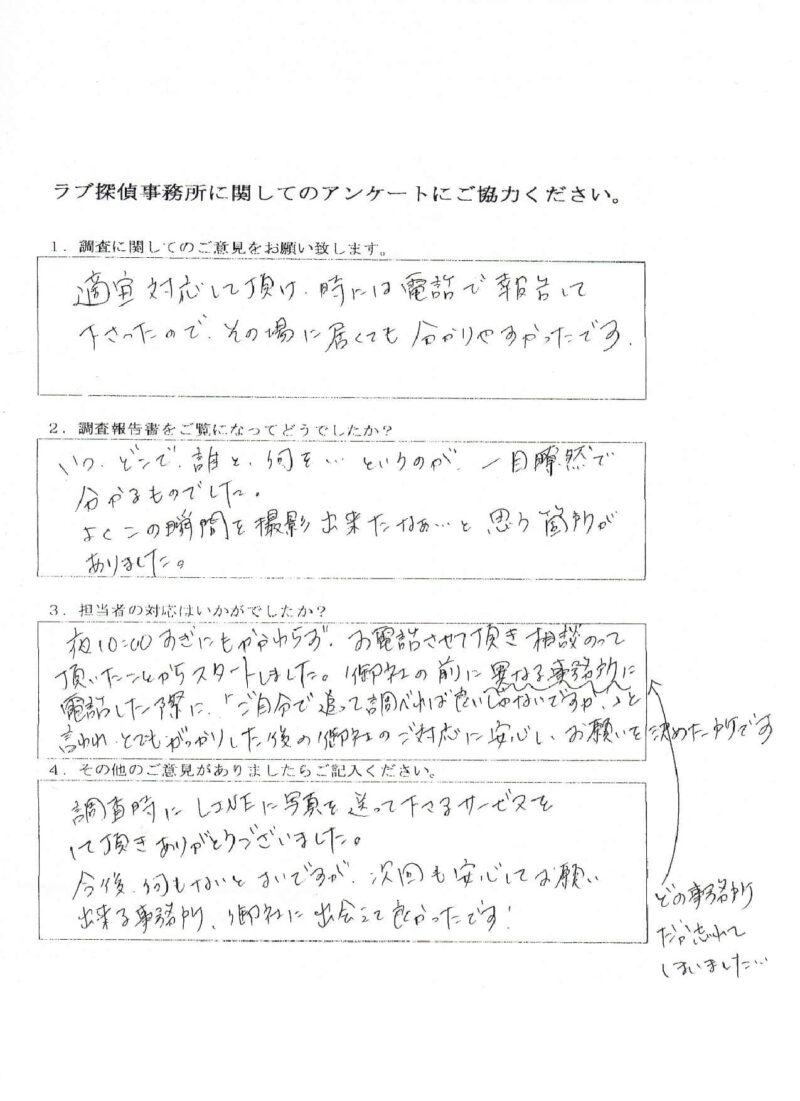 ラブ探偵事務所に関してのアンケートにご協力ください。
1．調査に関してのご意見をお願い致します。
適宜対応して頂け、時には電話で報告して
下さったので、その場に居なくても分かりやすかったです。
2．調査報告書をご覧になってどうでしたか？
いつ、どこで、誰と、何を…というのが、一目瞭然で
分かるものでした。
よくこの瞬間を撮影出来たなぁ…と思う箇所が
ありました。
3．担当者の対応はいかがでしたか？
夜10:00すぎにもかかわらず、お電話させて頂き相談のって
頂いたことからスタートしました。御社の前に異なる事務所に
電話した際に、「ご自分で追って調べれば良いじゃないですか、」と
言われ、とてもがっかりした後の御社のご対応に安心し、お願いを決めた所です
4．その他のご意見がありましたらご記入ください。
調査時にLINEに写真を送って下さるサービスを
して頂きありがとうございました。
今後、何もないとよいですが、次回も安心してお願い
出来る事務所、御社に出会えて良かったです！
どの事務所
だか忘れて
しまいました…